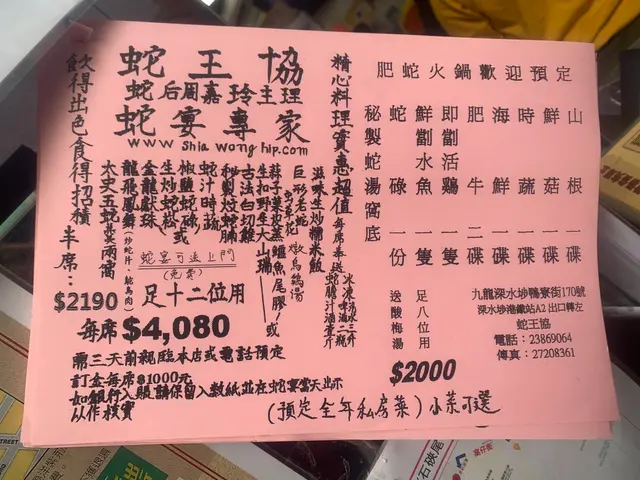 飲得出色食得招積
半席：
$2190
蛇王協
蛇后周嘉玲主理
蛇宴專家
www shia wong hip.com
精心料理實惠超值
每席奉送
滋味生炒糯米飯
巨形老蛇
燉烏鷄湯
古法白切雞
秘製炆蛇腩
蛇汁時蔬
椒鹽蛇碌或
生炒蛇松
金龍獻珠
龍飛鳳舞(炒蛇片、鴕鳥肉)
太史五蛇羹兩窩
蛇宴可送上門
(免費)
足十二位用
每席$4,080
需三天前親臨本店或電話預定
訂金每席$1000元
如銀行入賬請保留入數紙並在蛇宴當天出示
以作核實
(預定全年私房菜)小菜可選
肥蛇火鍋歡迎預定
秘製蛇湯窩底
蛇碌一份
鮮劏水魚一隻
即劏活鷄一隻
肥牛二碟
海鮮一碟
時蔬一碟
鮮菇一碟
山根一碟
送酸梅湯
足八位用
$2000
九龍深水埗鴨寮街170號
深水埗港鐵站A2 出口轉左
蛇王協
電話：23869064
傳真：27208361